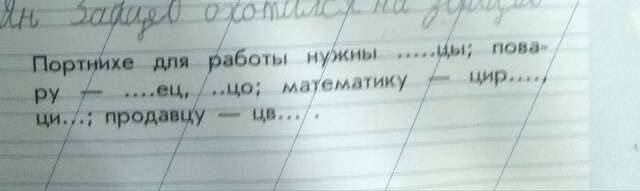 Ян Зайцев охотился на
Портнихе для работы нужны .....цы; пова-
ру — ....ец, ..цо; математику — цир....,
ци...; продавцу — цв... .